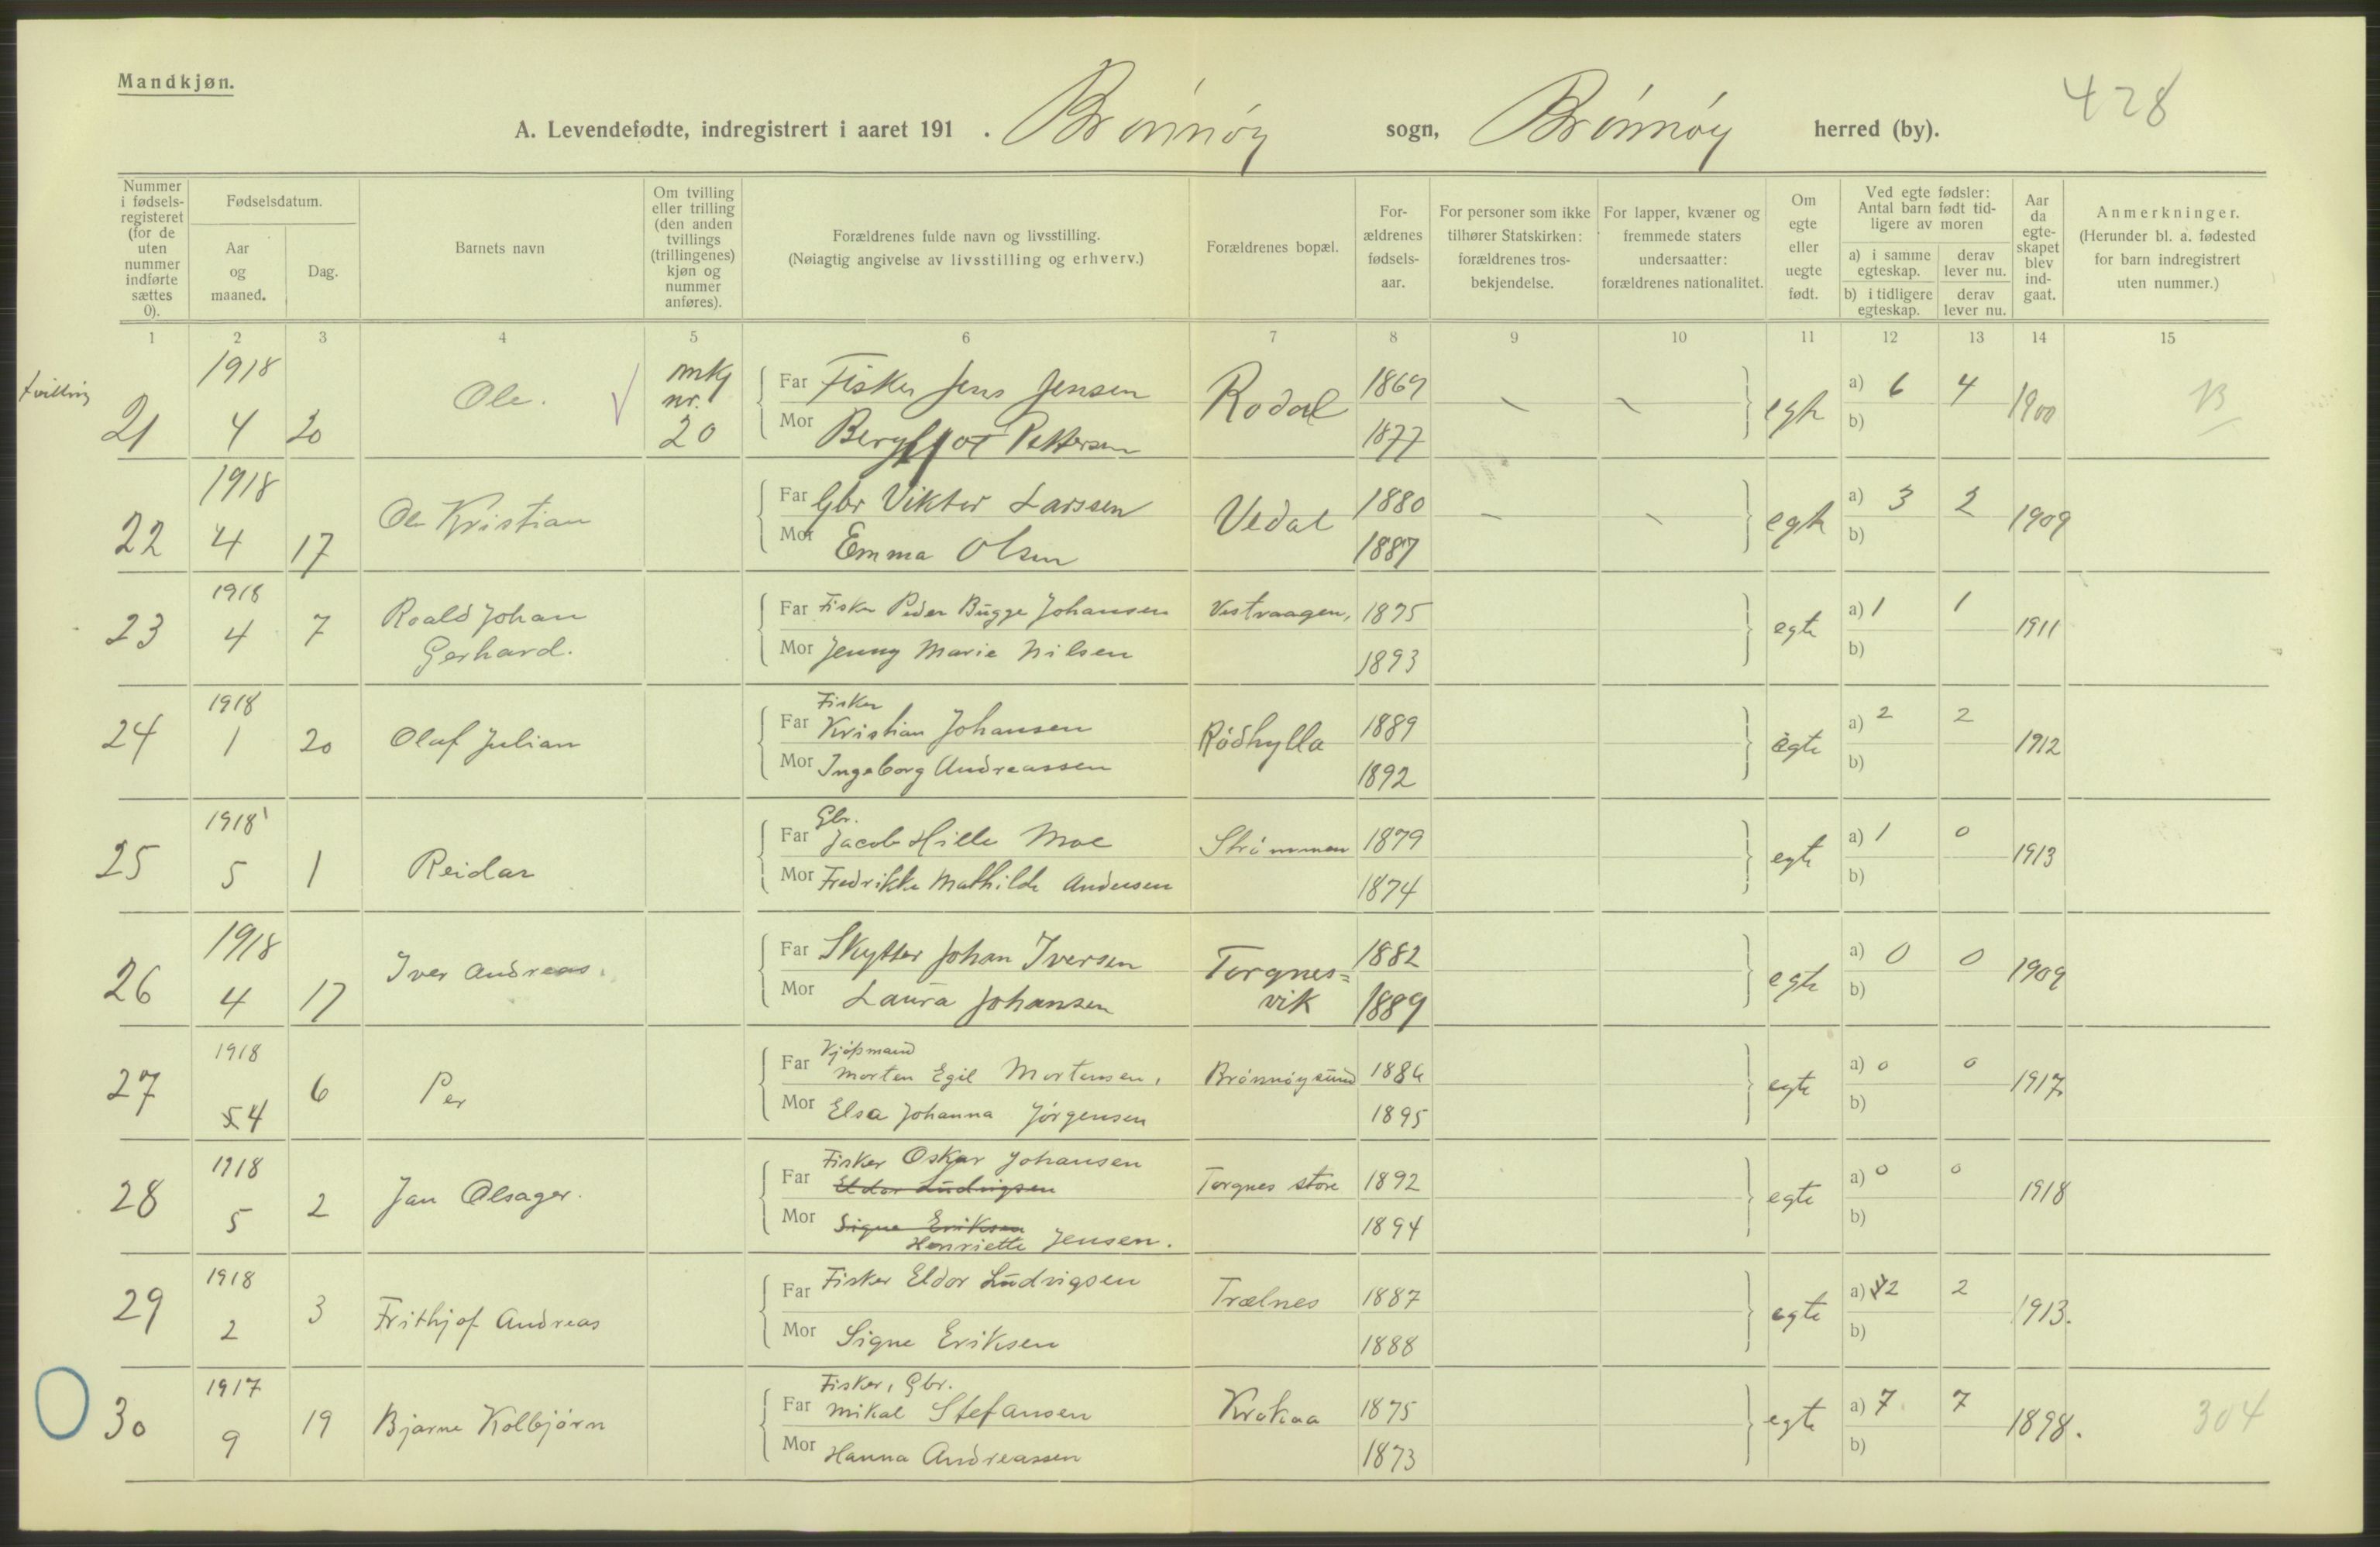 Mandkjøn.
428
A. Levendefødte, indregistrert i aaret 191 . Brønnøy sogn, Brønnøy herred (by).
Nummer i fødsels-registeret (for de uten nummer indførte sættes 0).
Fødselsdatum.
Aar og maaned.
Dag.
Barnets navn
Om tvilling eller trilling (den anden tvillings (trillingenes) kjøn og nummer anføres).
Forældrenes fulde navn og livsstilling.
(Nøiagtig angivelse av livsstilling og erhverv.)
Forældrenes bopæl.
For-ældrenes fødsels-aar.
For personer som ikke tilhører Statskirken: forældrenes tros-bekjendelse.
For lapper, kvæner og fremmede staters undersaatter: forældrenes nationalitet.
Om egte eller uegte født.
Ved egte fødsler: Antal barn født tid-ligere av moren
a) i samme egteskap.
derav lever nu.
b) i tidligere egteskap.
derav lever nu.
Aar da egte-skapet blev ind-gaat.
Anmerkninger.
(Herunder bl. a. fødested for barn indregistrert uten nummer.)
1 2 3 4 5 6 7 8 9 10 11 12 13 14 15
tvilling
21 1918 4 20 Ole. mkj nr. 20
Far Fisker Jens Jensen Rodal 1869 egte a) 6 4 1900
Mor Bergljot Pettersen 1877 b)
22 1918 4 17 Ole Kristian
Far Gbr Viktor Larssen Vedal 1880 egte a) 3 2 1909
Mor Emma Olsen 1887 b)
23 1918 4 7 Roald Johan Gerhard.
Far Fisker Peder Bugge Johansen Vestvaagen, 1895 egte a) 1 1 1911
Mor Jenny Marie Nilsen 1893 b)
24 1918 1 20 Olaf Julian
Fisker
Far Kristian Johansen Rödhylla 1889 egte a) 2 2 1912
Mor Ingeborg Andreassen 1892 b)
25 1918 5 1 Reidar
Gbr.
Far Jacob Hille Moe Strömmen 1879 egte a) 1 0 1913
Mor Fredrikke Mathilde Andersen 1874 b)
26 1918 4 17 Iver Andreas.
Far Skytter Johan Iversen Torgnes=vik 1882 egte a) 0 0 1909
Mor Laura Johansen 1889 b)
27 1918 5 4 6 Per
Kjöpmand
Far Morten Egil Mortensen, Brönnöysund 1886 egte a) 0 0 1917
Mor Elsa Johanna Jörgensen 1895 b)
28 1918 5 2 Jan Alsager.
Fisker Oskar Johansen
Far Eldor Ludvigsen Torgnes store 1892 egte a) 0 0 1918
Mor Signe Eriksen 1894 b)
Henriette Jensen.
29 1918 2 3 Frithjof Andreas
Far Fisker Eldor Ludvigsen Trælnes 1887 egte a) 2 2 1913.
Mor Signe Eriksen 1888 b)
30 1917 9 19 Bjarne Kolbjörn
Fisker, Gbr.
Far Mikal Stefansen Krokaa 1875 egte a) 7 7 1898. 304
Mor Hanna Andreassen 1873 b)